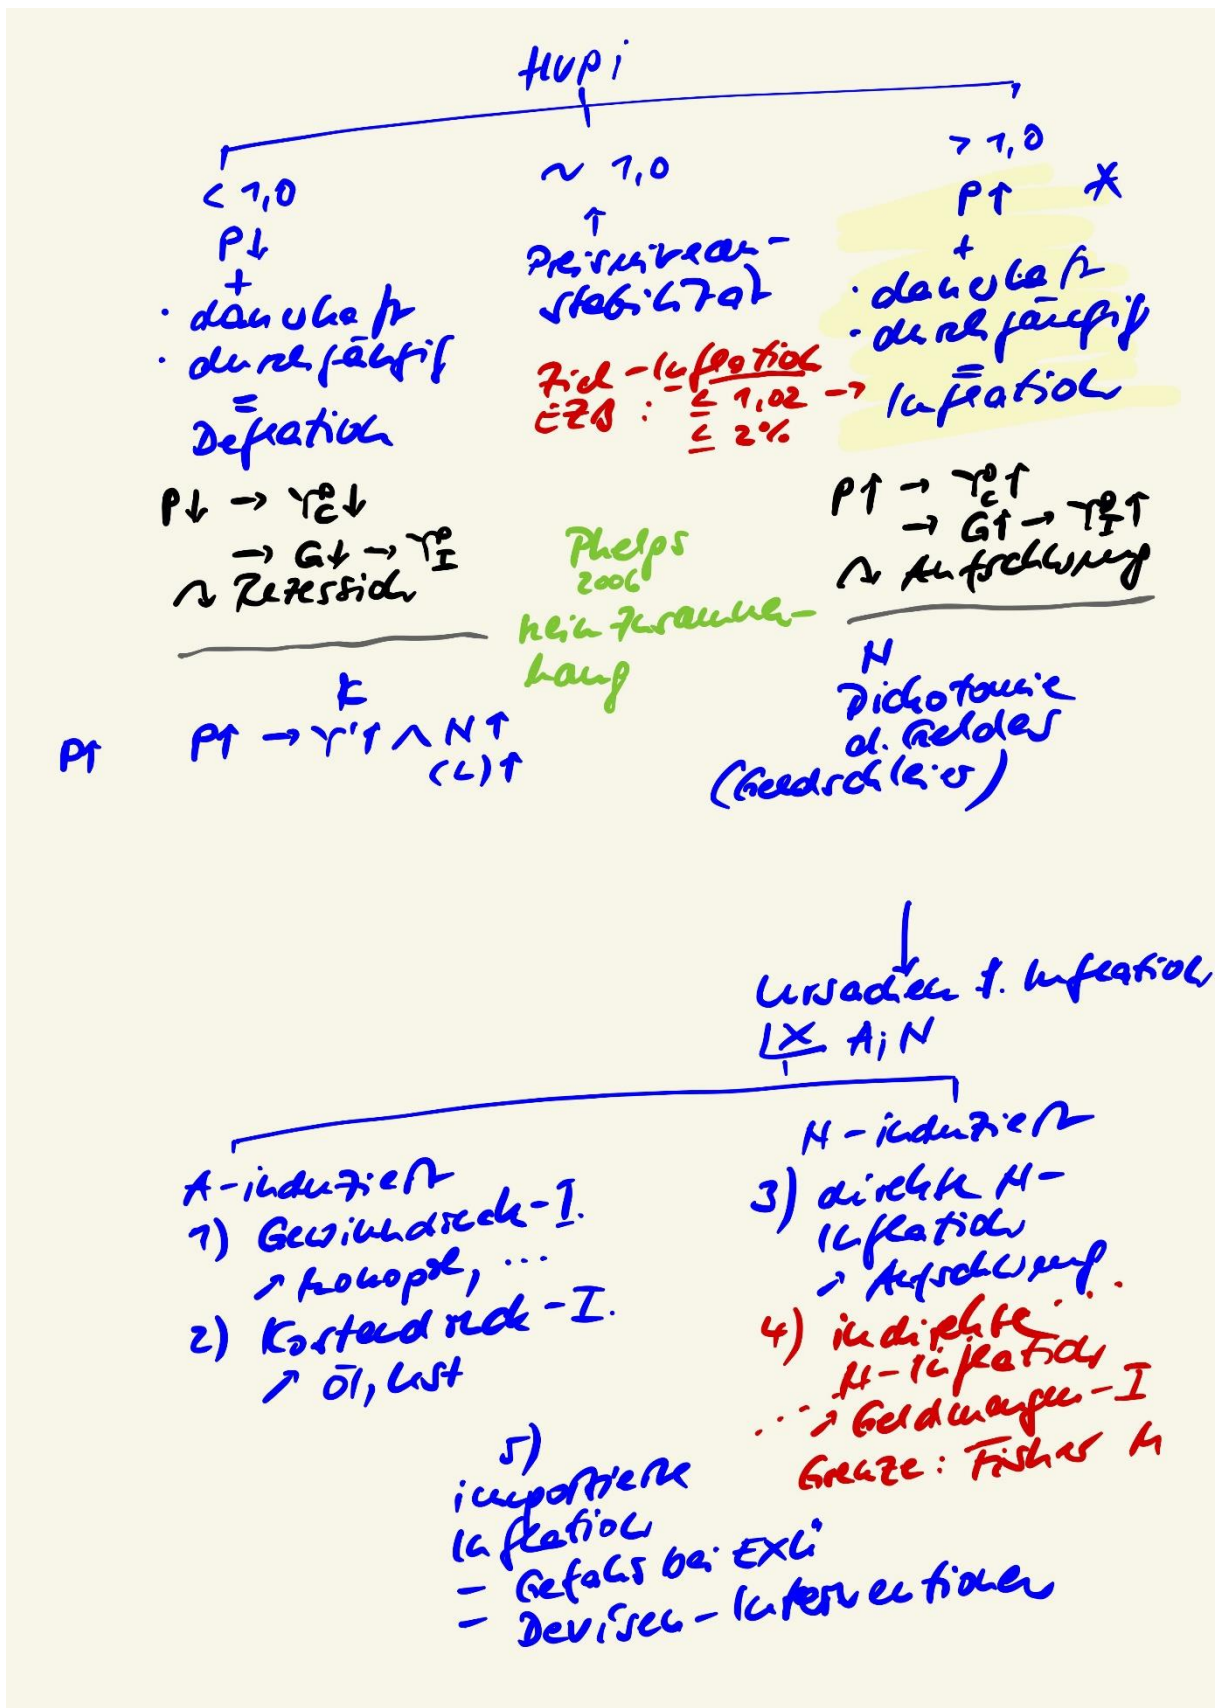 HVPi
< 1,0
P↓
+
· dauerhaft
· durchgängig
=
Deflation
P↓ → Y_C^D ↓
→ G↓ → Y_I^D
↷ Rezession
~ 1,0
↑
Preisniveau-
stabilität
Ziel-Inflation
EZB : ≤ 1,02 →
≤ 2%
Phelps
2006
kein Zusammen-
hang
> 1,0
P↑ *
+
· dauerhaft
· durchgängig
=
Inflation
P↑ → Y_C^D ↑
→ G↑ → Y_I^D ↑
↷ Aufschwung
K
P↑ P↑ → Y^r ↑ ∧ N ↑
(L)↑
N
Dichotomie
d. Geldes
(Geldschleier)
↓
Ursachen f. Inflation
X A; N
A-induziert
1) Gewinndruck-I.
↗ Monopol, ...
2) Kostendruck-I.
↗ Öl,
N-induziert
3) direkte N-
Inflation
↗ Aufschwung
4) indirekte
N-Inflation
↗ Geldmengen-I
Grenze: Fisher M
5)
importierte
Inflation
- Gefahr bei EXÜ
- Devisen-Interventionen